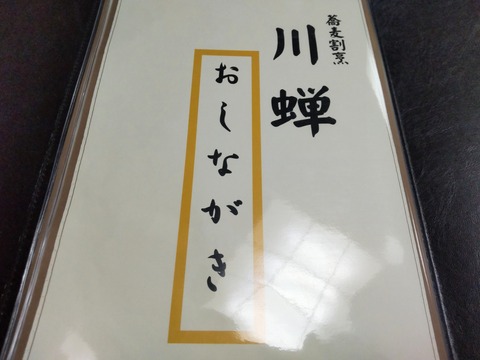 蕎麦割烹
川蝉
おしながき